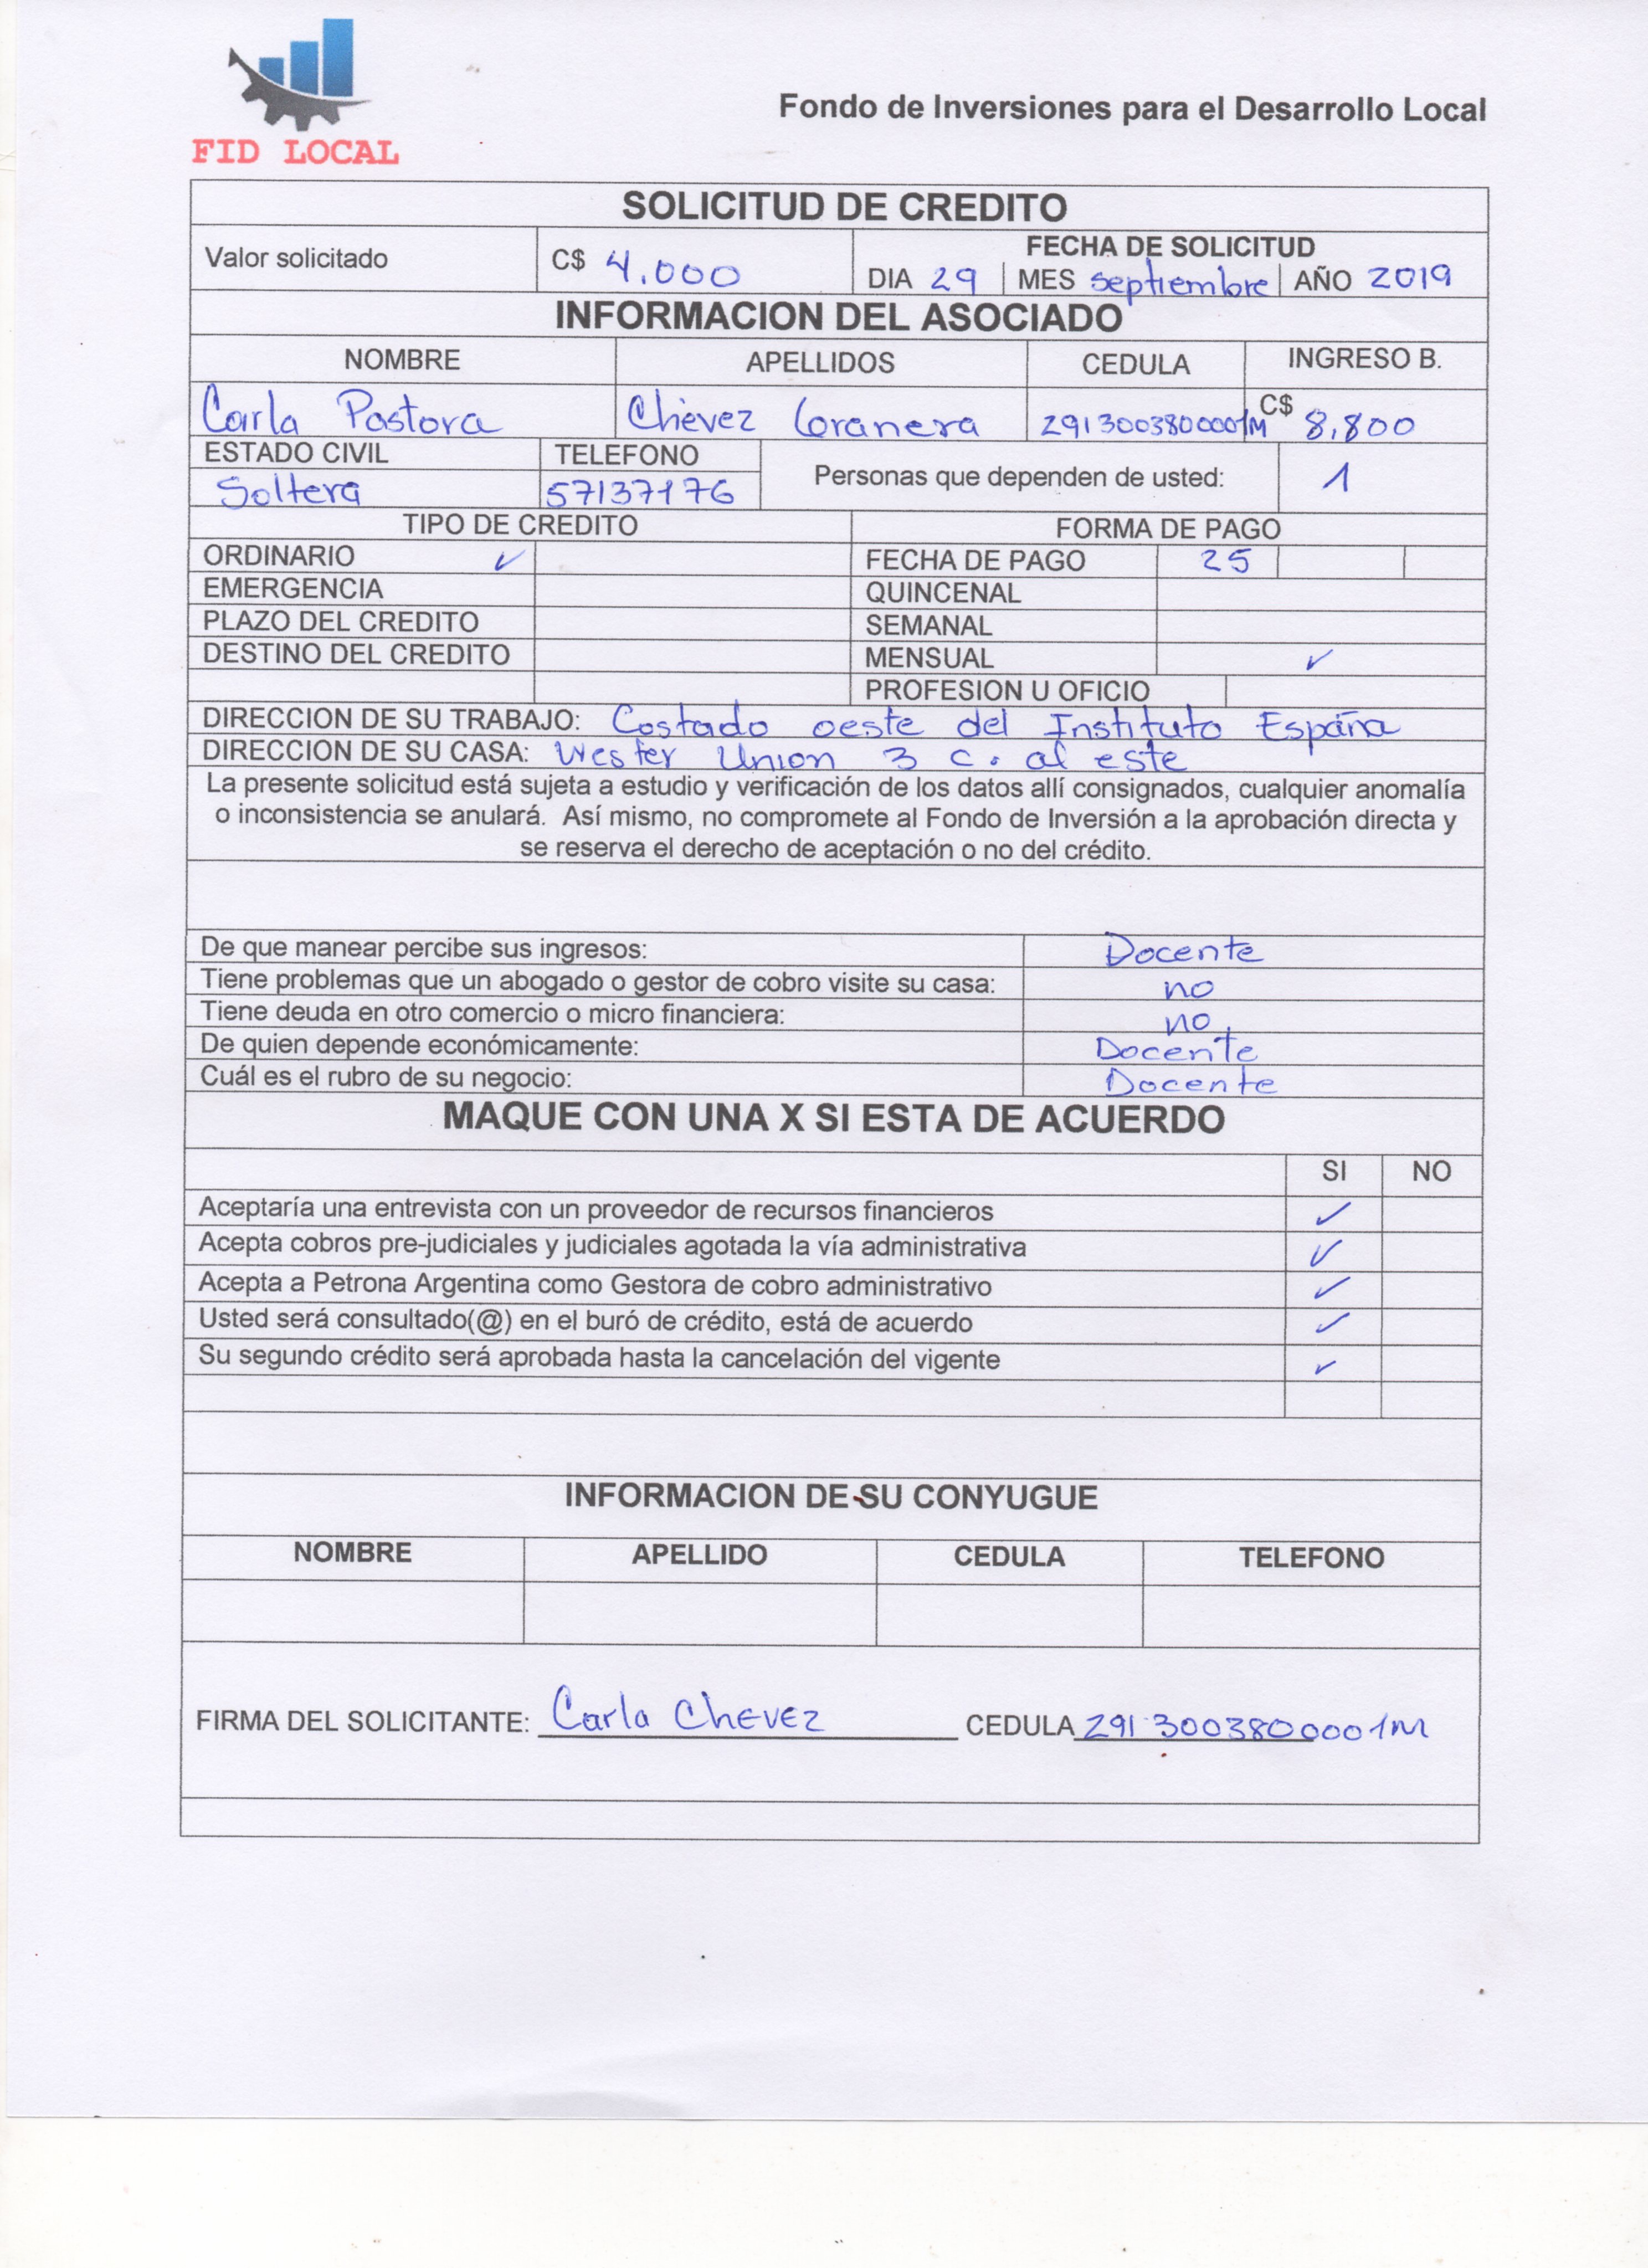 FID LOCAL
Fondo de Inversiones para el Desarrollo Local
SOLICITUD DE CREDITO
Valor solicitado C$ 4.000 FECHA DE SOLICITUD
DIA 29 MES septiembre AÑO 2019
INFORMACION DEL ASOCIADO
NOMBRE APELLIDOS CEDULA INGRESO B.
Carla Pastora Chévez Loranera 2913003800001M C$ 8,800
ESTADO CIVIL TELEFONO Personas que dependen de usted: 1
Soltera 57137176
TIPO DE CREDITO FORMA DE PAGO
ORDINARIO ✓ FECHA DE PAGO 25
EMERGENCIA QUINCENAL
PLAZO DEL CREDITO SEMANAL
DESTINO DEL CREDITO MENSUAL ✓
PROFESION U OFICIO
DIRECCION DE SU TRABAJO: Costado oeste del Instituto España
DIRECCION DE SU CASA: Wester Union 3 c. al este
La presente solicitud está sujeta a estudio y verificación de los datos allí consignados, cualquier anomalía
o inconsistencia se anulará. Así mismo, no compromete al Fondo de Inversión a la aprobación directa y
se reserva el derecho de aceptación o no del crédito.
De que manear percibe sus ingresos: Docente
Tiene problemas que un abogado o gestor de cobro visite su casa: no
Tiene deuda en otro comercio o micro financiera: no
De quien depende económicamente: Docente
Cuál es el rubro de su negocio: Docente
MAQUE CON UNA X SI ESTA DE ACUERDO
SI NO
Aceptaría una entrevista con un proveedor de recursos financieros ✓
Acepta cobros pre-judiciales y judiciales agotada la vía administrativa ✓
Acepta a Petrona Argentina como Gestora de cobro administrativo ✓
Usted será consultado(@) en el buró de crédito, está de acuerdo ✓
Su segundo crédito será aprobada hasta la cancelación del vigente ✓
INFORMACION DE SU CONYUGUE
NOMBRE APELLIDO CEDULA TELEFONO
FIRMA DEL SOLICITANTE: Carla Chevez CEDULA 291 3003800001M